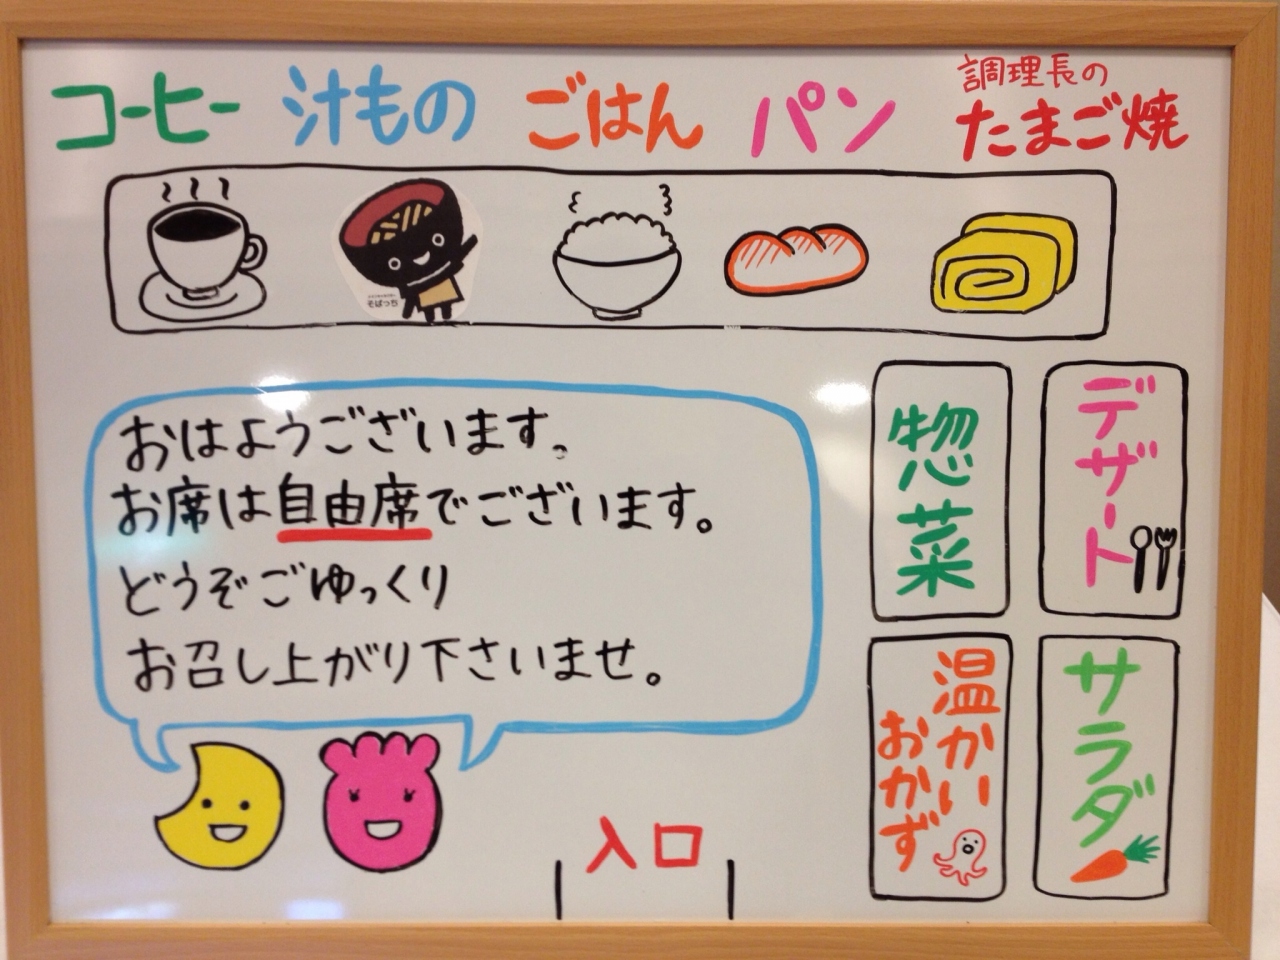 コーヒー 汁もの ごはん パン 調理長の
たまご焼
そばっち
おはようございます。
お席は自由席でございます。
どうぞごゆっくり
お召し上がり下さいませ。
惣菜
デザート
温かい
おかず
サラダ
入口